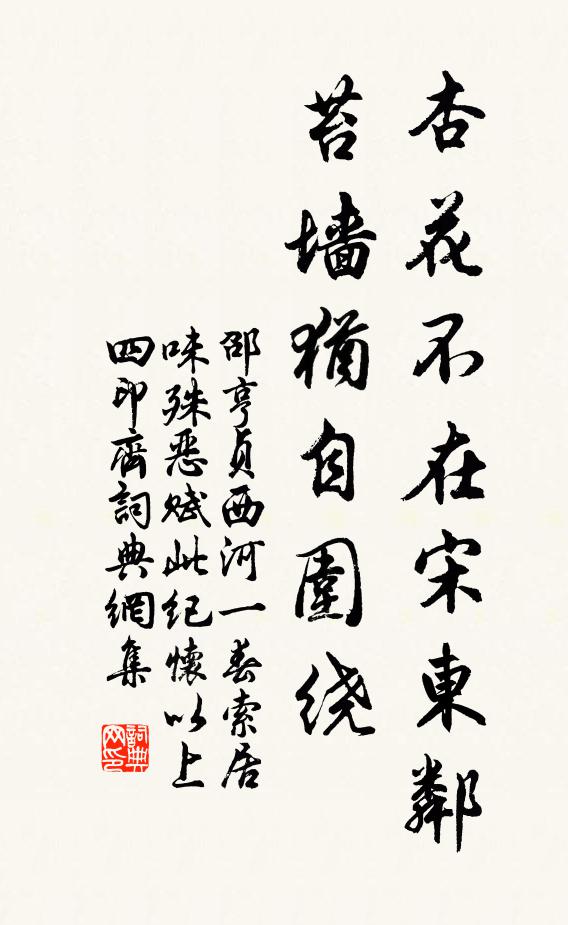 杏花不在宋東鄰
苔墙猶自圍绕
邵亨貞西河一春索居
味殊恶赋此纪懷以上
四印齋詞典網集
詞典网印